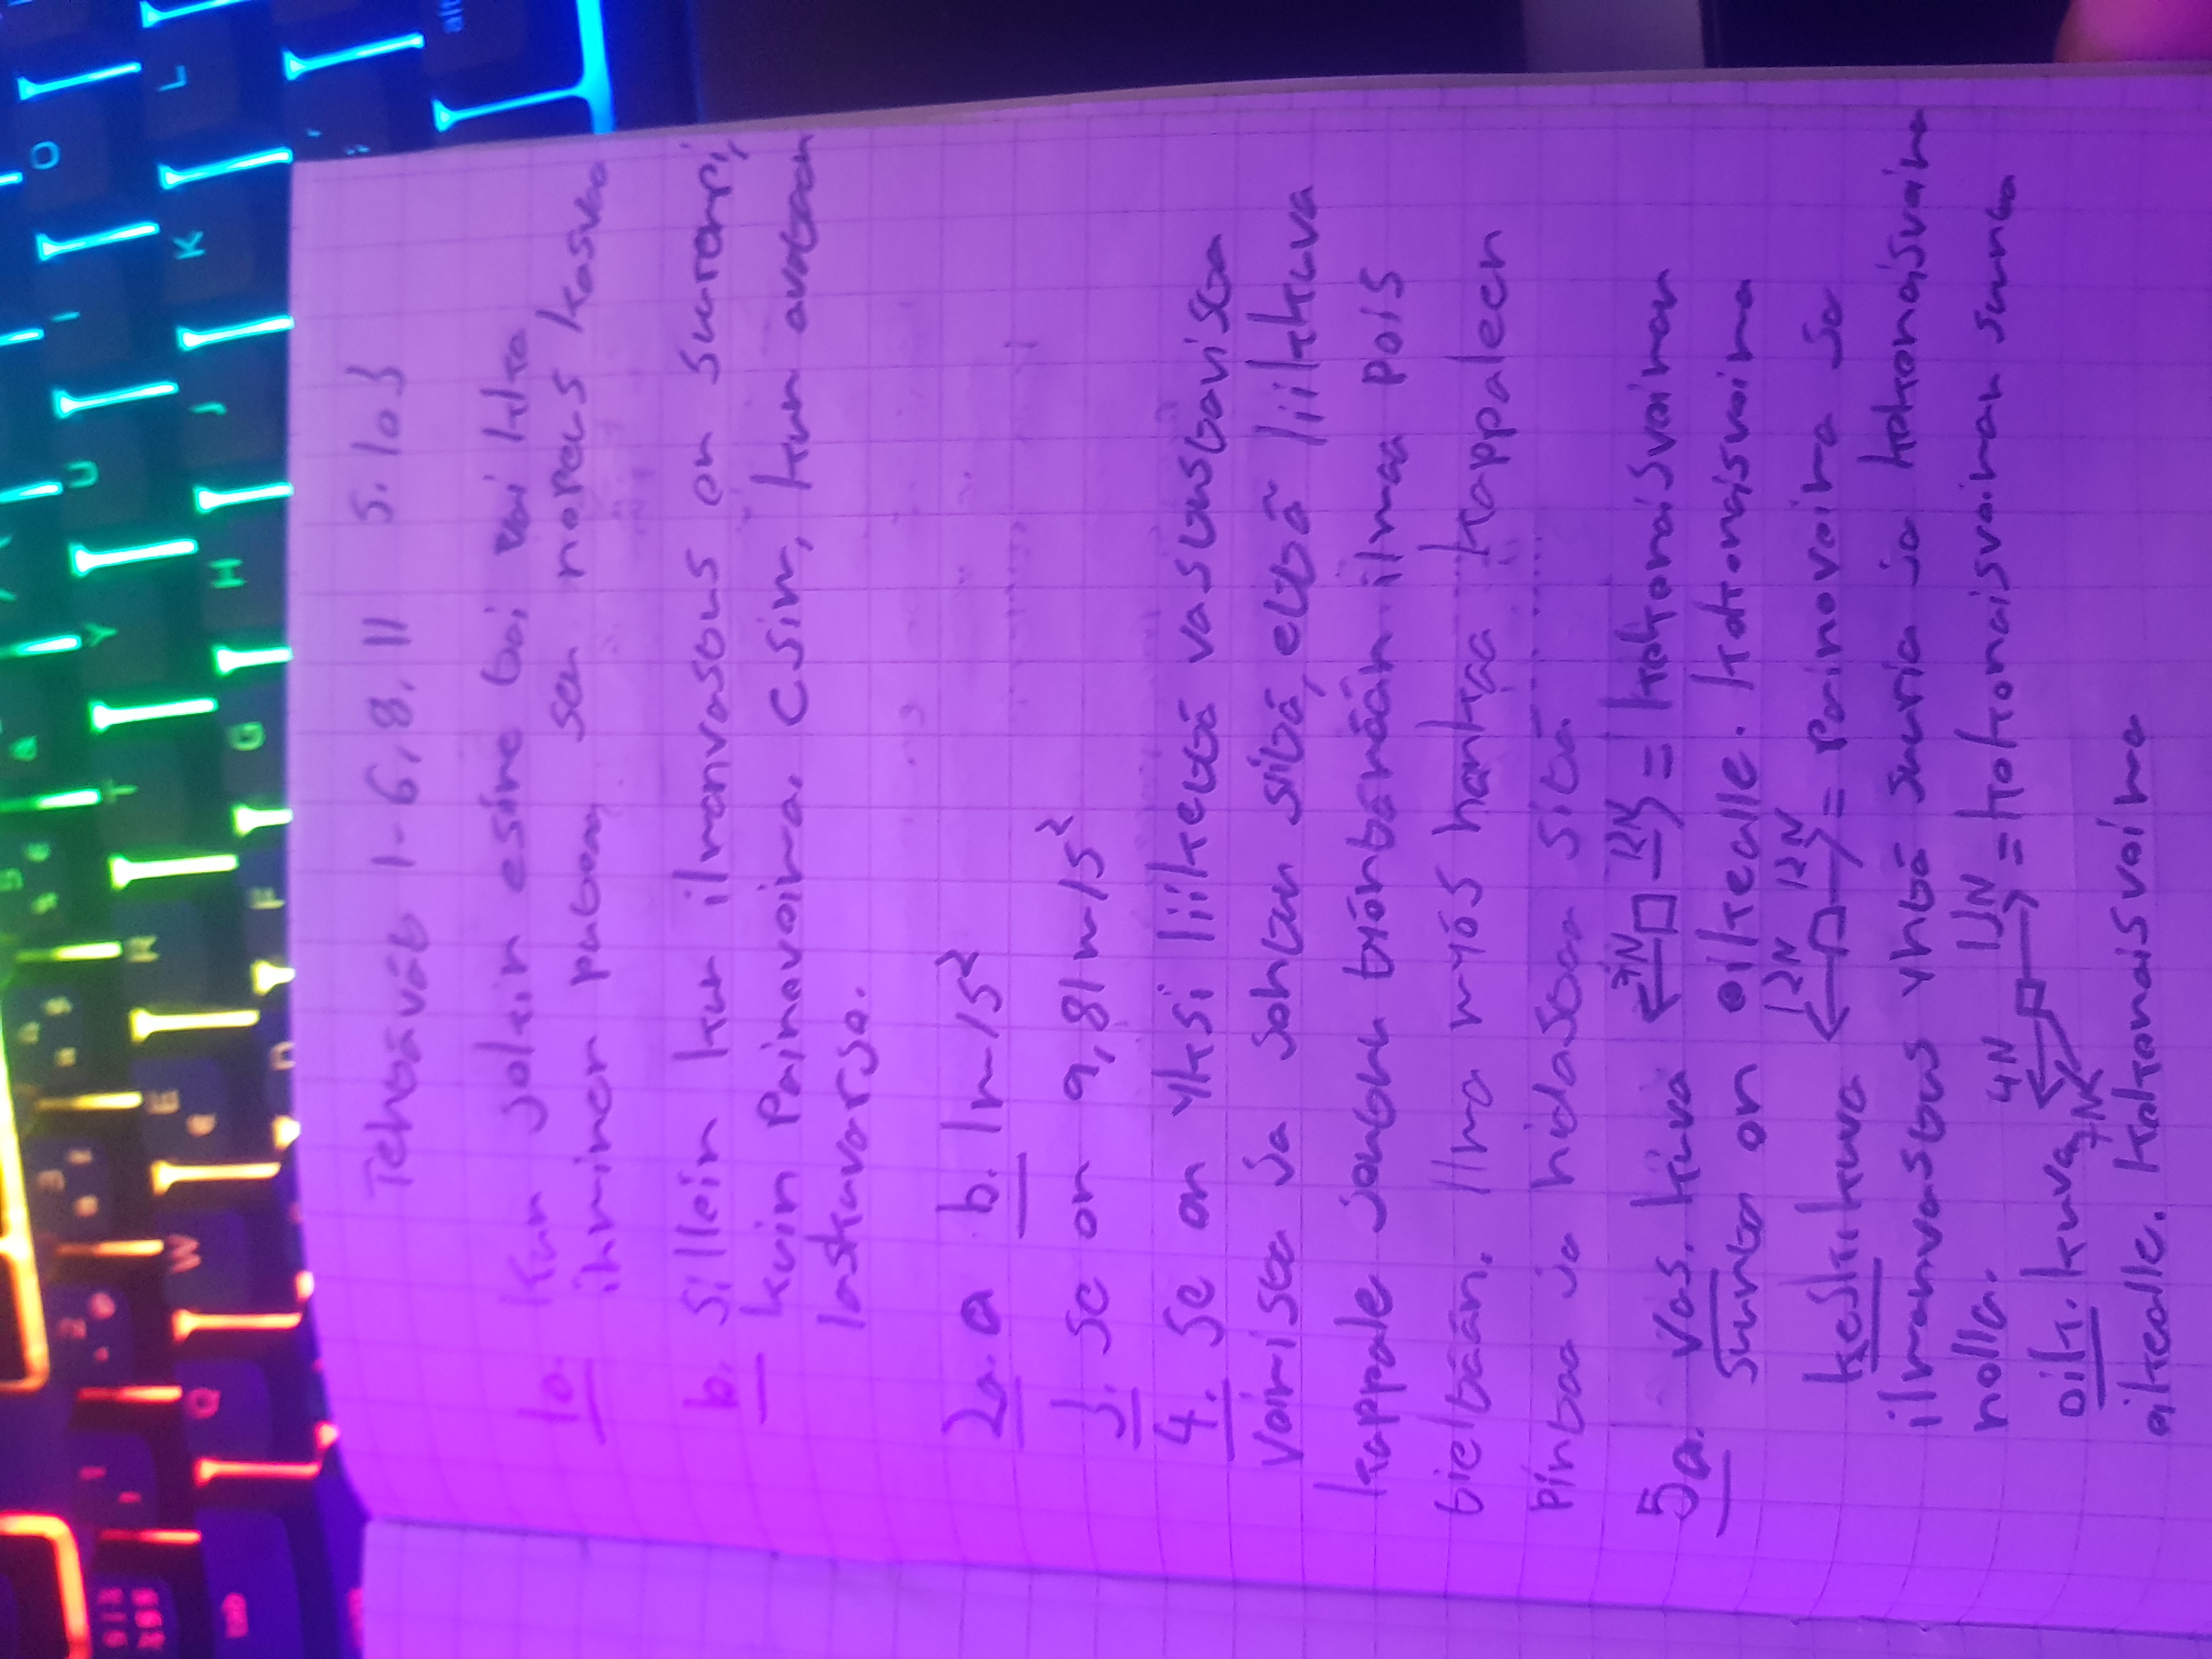 Tehtävät 1-6,8,11 s.103
1a. Kun jokin esine tai vaikka
ihminen putoaa, sen nopeus kasvaa
b. Silloin kun ilmanvastus on suurempi,
kuin Painovoima. Esim, kun avataan
laskuvarjo.
2a. a b. 1m/s²
3. Se on 9,81m/s²
4. Se on yksi liikettä vastustavista
voimista ja johtuu siitä, että liikkuva
kappale joutuu työntämään ilmaa pois
tieltään. Ilma myös hankaa kappaleen
pintaa ja hidastaa sitä
5a. Vas. kuva 7N 12N = kokonaisvoiman
suunta on oikealle. kokonaisvoima
keskikuva 12N 12N = painovoima ja
ilmanvastus yhtä suuria ja kokonaisvoima
nolla. 4N 13N
oik. kuva 7N = kokonaisvoiman suunta
oikealle. kokonaisvoima
O
L
alt
I
K
;
'
U
J
Y
H
T
G
R
F
E
D
W
Q
tab